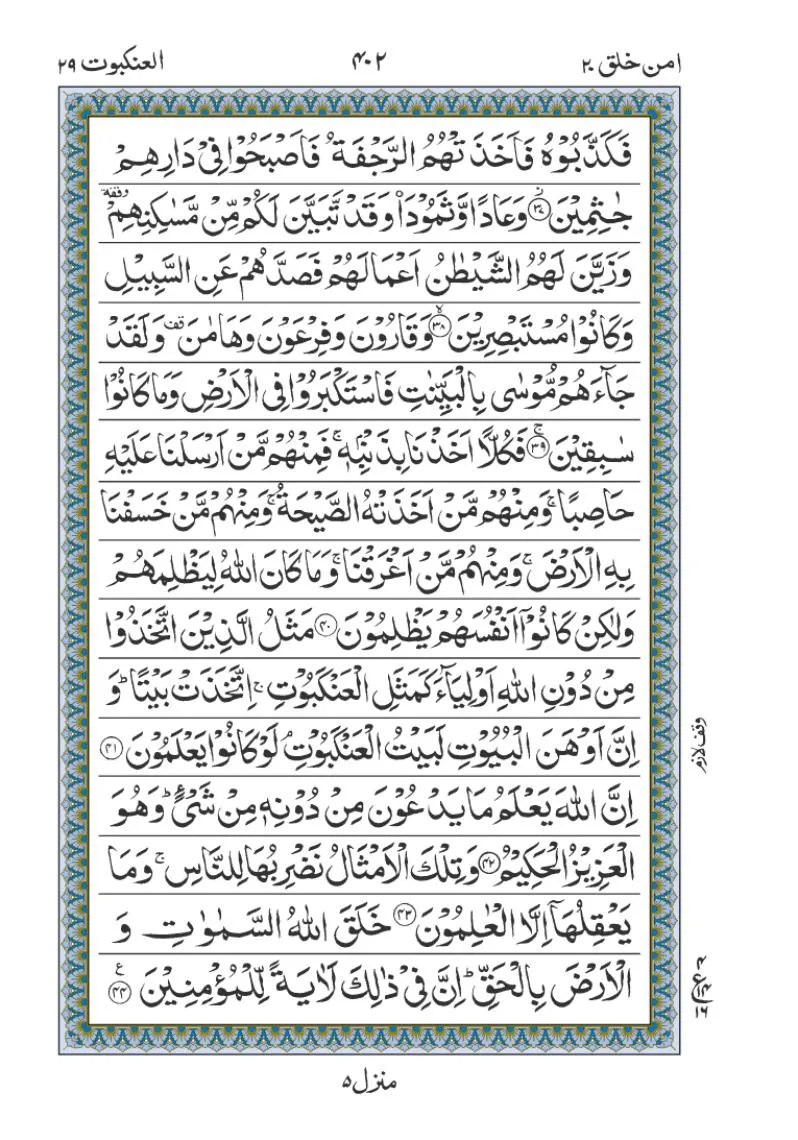 امن خلق ۲۰
۴۰۲
العنکبوت ۲۹
فَكَذَّبُوْهُ فَاَخَذَتْهُمُ الرَّجْفَةُ فَاَصْبَحُوْا فِیْ دَارِهِمْ
جٰثِمِیْنَ ۟ؗ ﴿۳۷﴾ وَعَادًا وَّثَمُوْدَاۡ وَقَدْ تَّبَیَّنَ لَكُمْ مِّنْ مَّسٰكِنِهِمْ ۫ وقفة
وَزَیَّنَ لَهُمُ الشَّیْطٰنُ اَعْمَالَهُمْ فَصَدَّهُمْ عَنِ السَّبِیْلِ
وَكَانُوْا مُسْتَبْصِرِیْنَ ۙ﴿۳۸﴾ وَقَارُوْنَ وَفِرْعَوْنَ وَهَامٰنَ قف وَلَقَدْ
جَآءَهُمْ مُّوْسٰی بِالْبَیِّنٰتِ فَاسْتَكْبَرُوْا فِی الْاَرْضِ وَمَا كَانُوْا
سٰبِقِیْنَ ۚ﴿۳۹﴾ فَكُلًّا اَخَذْنَا بِذَنْۢبِهٖ ۚ فَمِنْهُمْ مَّنْ اَرْسَلْنَا عَلَیْهِ
حَاصِبًا ۚ وَمِنْهُمْ مَّنْ اَخَذَتْهُ الصَّیْحَةُ ۚ وَمِنْهُمْ مَّنْ خَسَفْنَا
بِهِ الْاَرْضَ ۚ وَمِنْهُمْ مَّنْ اَغْرَقْنَا ۚ وَمَا كَانَ اللّٰهُ لِیَظْلِمَهُمْ
وَلٰكِنْ كَانُوْۤا اَنْفُسَهُمْ یَظْلِمُوْنَ ﴿۴۰﴾ مَثَلُ الَّذِیْنَ اتَّخَذُوْا
مِنْ دُوْنِ اللّٰهِ اَوْلِیَآءَ كَمَثَلِ الْعَنْكَبُوْتِ ۚ اِتَّخَذَتْ بَیْتًا ؕ وَ
اِنَّ اَوْهَنَ الْبُیُوْتِ لَبَیْتُ الْعَنْكَبُوْتِ ۘ لَوْ كَانُوْا یَعْلَمُوْنَ ﴿۴۱﴾
وقف لازم
اِنَّ اللّٰهَ یَعْلَمُ مَا یَدْعُوْنَ مِنْ دُوْنِهٖ مِنْ شَیْءٍ ؕ وَهُوَ
الْعَزِیْزُ الْحَكِیْمُ ﴿۴۲﴾ وَتِلْكَ الْاَمْثَالُ نَضْرِبُهَا لِلنَّاسِ ۚ وَمَا
یَعْقِلُهَاۤ اِلَّا الْعٰلِمُوْنَ ﴿۴۳﴾ خَلَقَ اللّٰهُ السَّمٰوٰتِ وَ
الْاَرْضَ بِالْحَقِّ ؕ اِنَّ فِیْ ذٰلِكَ لَاٰیَةً لِّلْمُؤْمِنِیْنَ ﴿۴۴﴾ ع
۴ ع ۱۴ ۱۶
منزل ۵